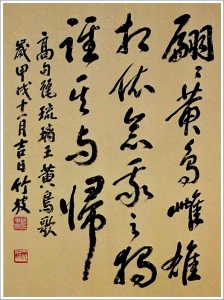 翩〻黃鳥雌雄
相依念我之獨
誰其與歸
高句麗琉璃王黃鳥歌
歲甲戌十一月吉日竹